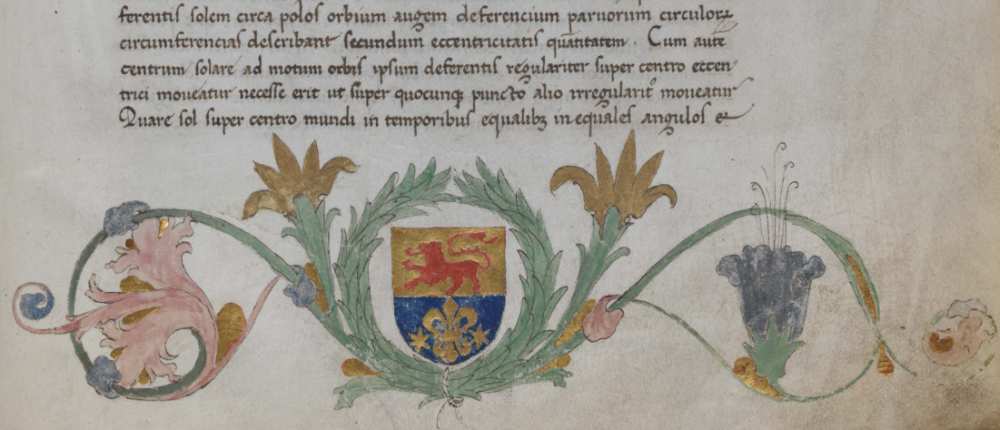 ferentis solem circa polos orbium augem deferencium paruorum circuloꝝ
circumferencias describant secundum eccentricitatis quãtitatem. Cum autẽ
centrum solare ad motum orbis ipsum deferentis regulariter super centro eccen
trici moueatur necesse erit ut super quocunqꝫ puncto alio irregularit᷑ moueatur
Quare sol super centro mundi in temporibus equalibꝫ inequales angulos et